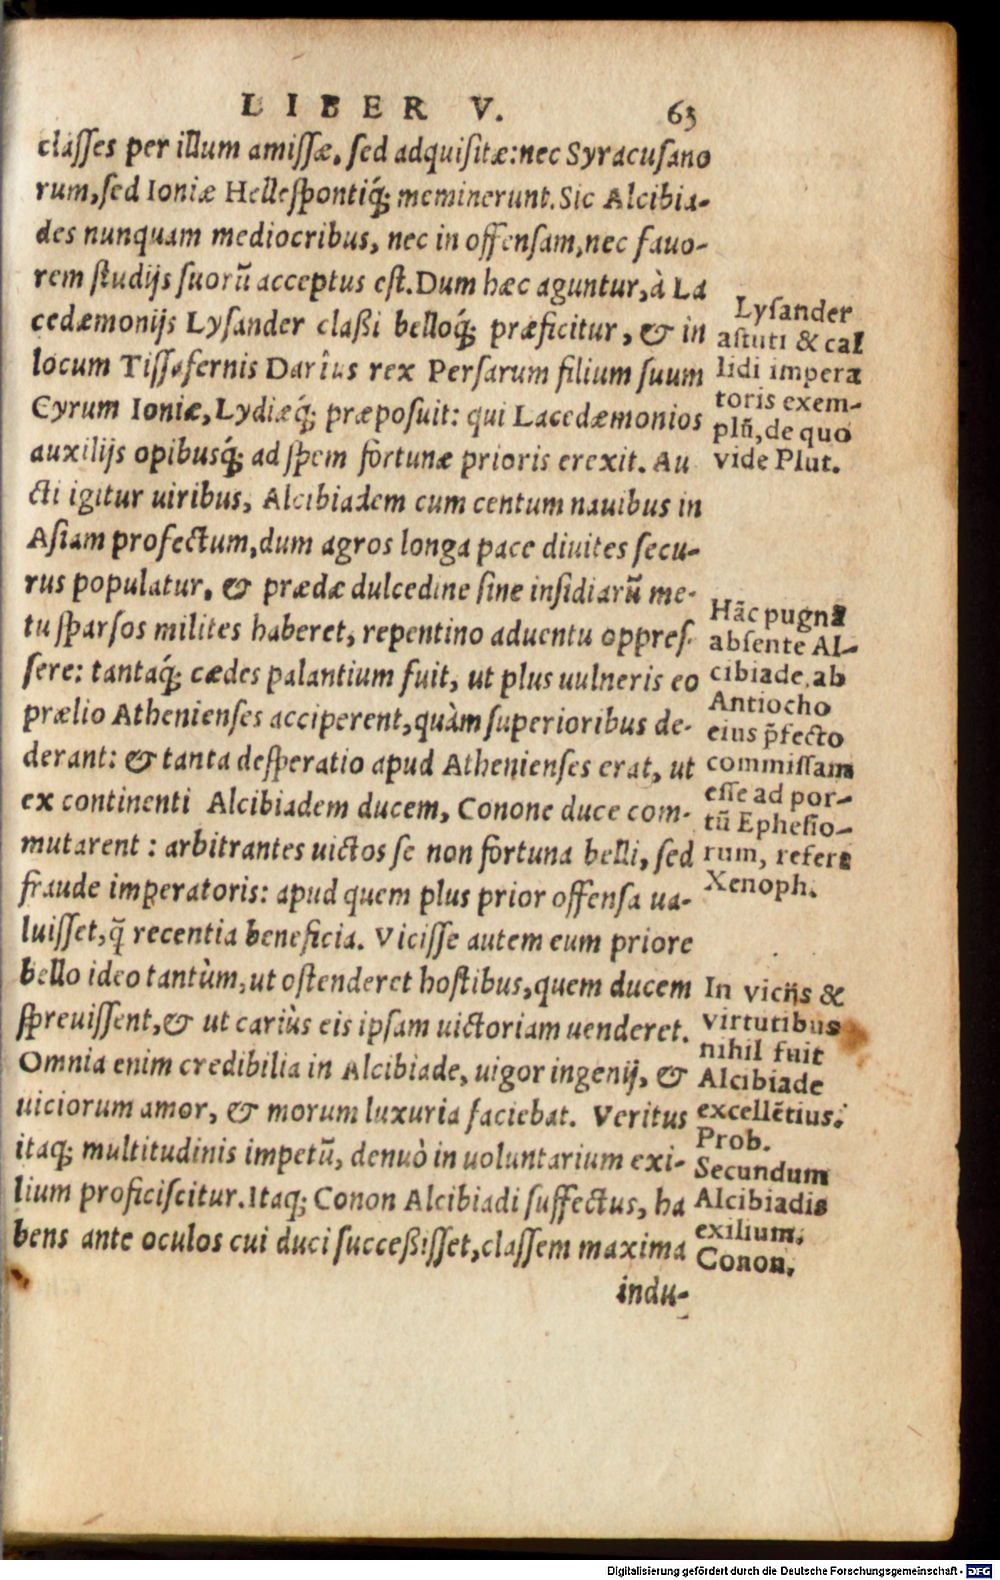 LIBER V. 63
classes per illum amissæ, sed adquisitæ: nec Syracusano
rum, sed Ioniæ Hellespontiq́; meminerunt. Sic Alcibia-
des nunquam mediocribus, nec in offensam, nec fauo-
rem studijs suorũ acceptus est. Dum hæc aguntur, à La
cedæmonijs Lysander claßi belloq́; præficitur, & in
locum Tissafernis Darius rex Persarum filium suum
Cyrum Ioniæ, Lydiæq́; præposuit: qui Lacedæmonios
auxilijs opibusq́; ad spem fortunæ prioris erexit. Au
cti igitur uiribus, Alcibiadem cum centum nauibus in
Asiam profectum, dum agros longa pace diuites secu-
rus populatur, & prædæ dulcedine sine insidiarũ me-
tu sparsos milites haberet, repentino aduentu oppres-
sere: tantaq́; cædes palantium fuit, ut plus uulneris eo
prælio Athenienses acciperent, quàm superioribus de-
derant: & tanta desperatio apud Athenienses erat, ut
ex continenti Alcibiadem ducem, Conone duce com-
mutarent: arbitrantes uictos se non fortuna belli, sed
fraude imperatoris: apud quem plus prior offensa ua-
luisset, q̃ recentia beneficia. Vicisse autem eum priore
bello ideo tantùm, ut ostenderet hostibus, quem ducem
spreuissent, & ut cariùs eis ipsam uictoriam uenderet.
Omnia enim credibilia in Alcibiade, uigor ingenij, &
uiciorum amor, & morum luxuria faciebat. Veritus
itaq; multitudinis impetũ, denuò in uoluntarium exi-
lium proficiscitur. Itaq; Conon Alcibiadi suffectus, ha
bens ante oculos cui duci succeßisset, classem maxima
indu-
Lysander
astuti & cal
lidi impera
toris exem-
plũ, de quo
vide Plut.
Hãc pugnã
absente Al-
cibiade, ab
Antiocho
eius p̃fecto
commissam
esse ad por-
tũ Ephesio-
rum, refert
Xenoph.
In viciis &
virtutibus
nihil fuit
Alcibiade
excellẽtius:
Prob.
Secundum
Alcibiadis
exilium.
Conon.
Digitalisierung gefördert durch die Deutsche Forschungsgemeinschaft - DFG